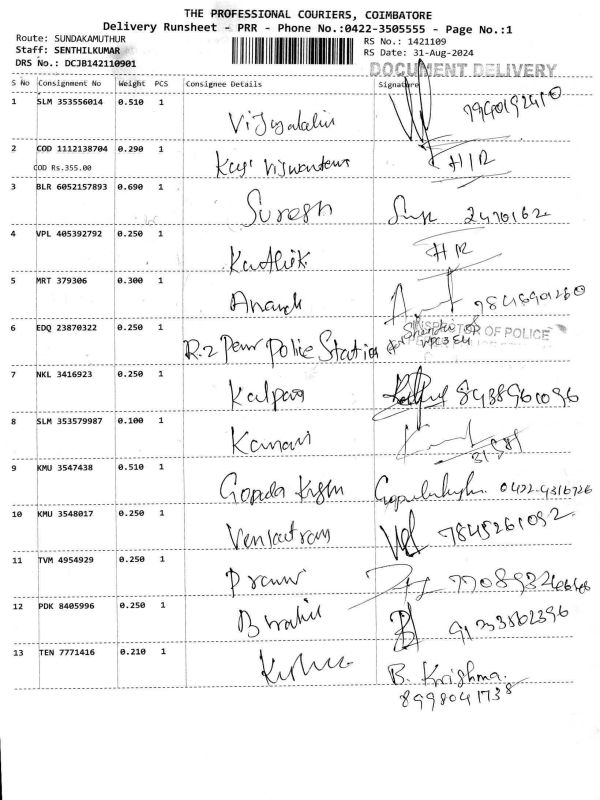 THE PROFESSIONAL COURIERS, COIMBATORE
Delivery Runsheet - PRR - Phone No.:0422-3505555 - Page No.:1
Route: SUNDAKAMUTHUR
RS No.: 1421109
Staff: SENTHILKUMAR
RS Date: 31-Aug-2024
DRS No.: DCJB142110901
DOCUMENT DELIVERY
S No Consignment No Weight PCS Consignee Details Signature
1 SLM 353556014 0.510 1
2 COD 1112138704 0.290 1 H/R
COD Rs.355.00
3 BLR 6052157893 0.690 1 Suresh 2470162
4 VPL 405392792 0.250 1 Karthik H/R
5 MRT 379306 0.300 1 Anand
6 EDQ 23870322 0.250 1 R.2 Police Station INSPECTOR OF POLICE
7 NKL 3416923 0.250 1 Kalpana 8438961096
8 SLM 353579987 0.100 1 Kannan
9 KMU 3547438 0.510 1 0422-4316726
10 KMU 3548017 0.250 1 Venkatram 7845261092
11 TVM 4954929 0.250 1
12 PDK 8405996 0.250 1
13 TEN 7771416 0.210 1 B. Krishma.
8998041738